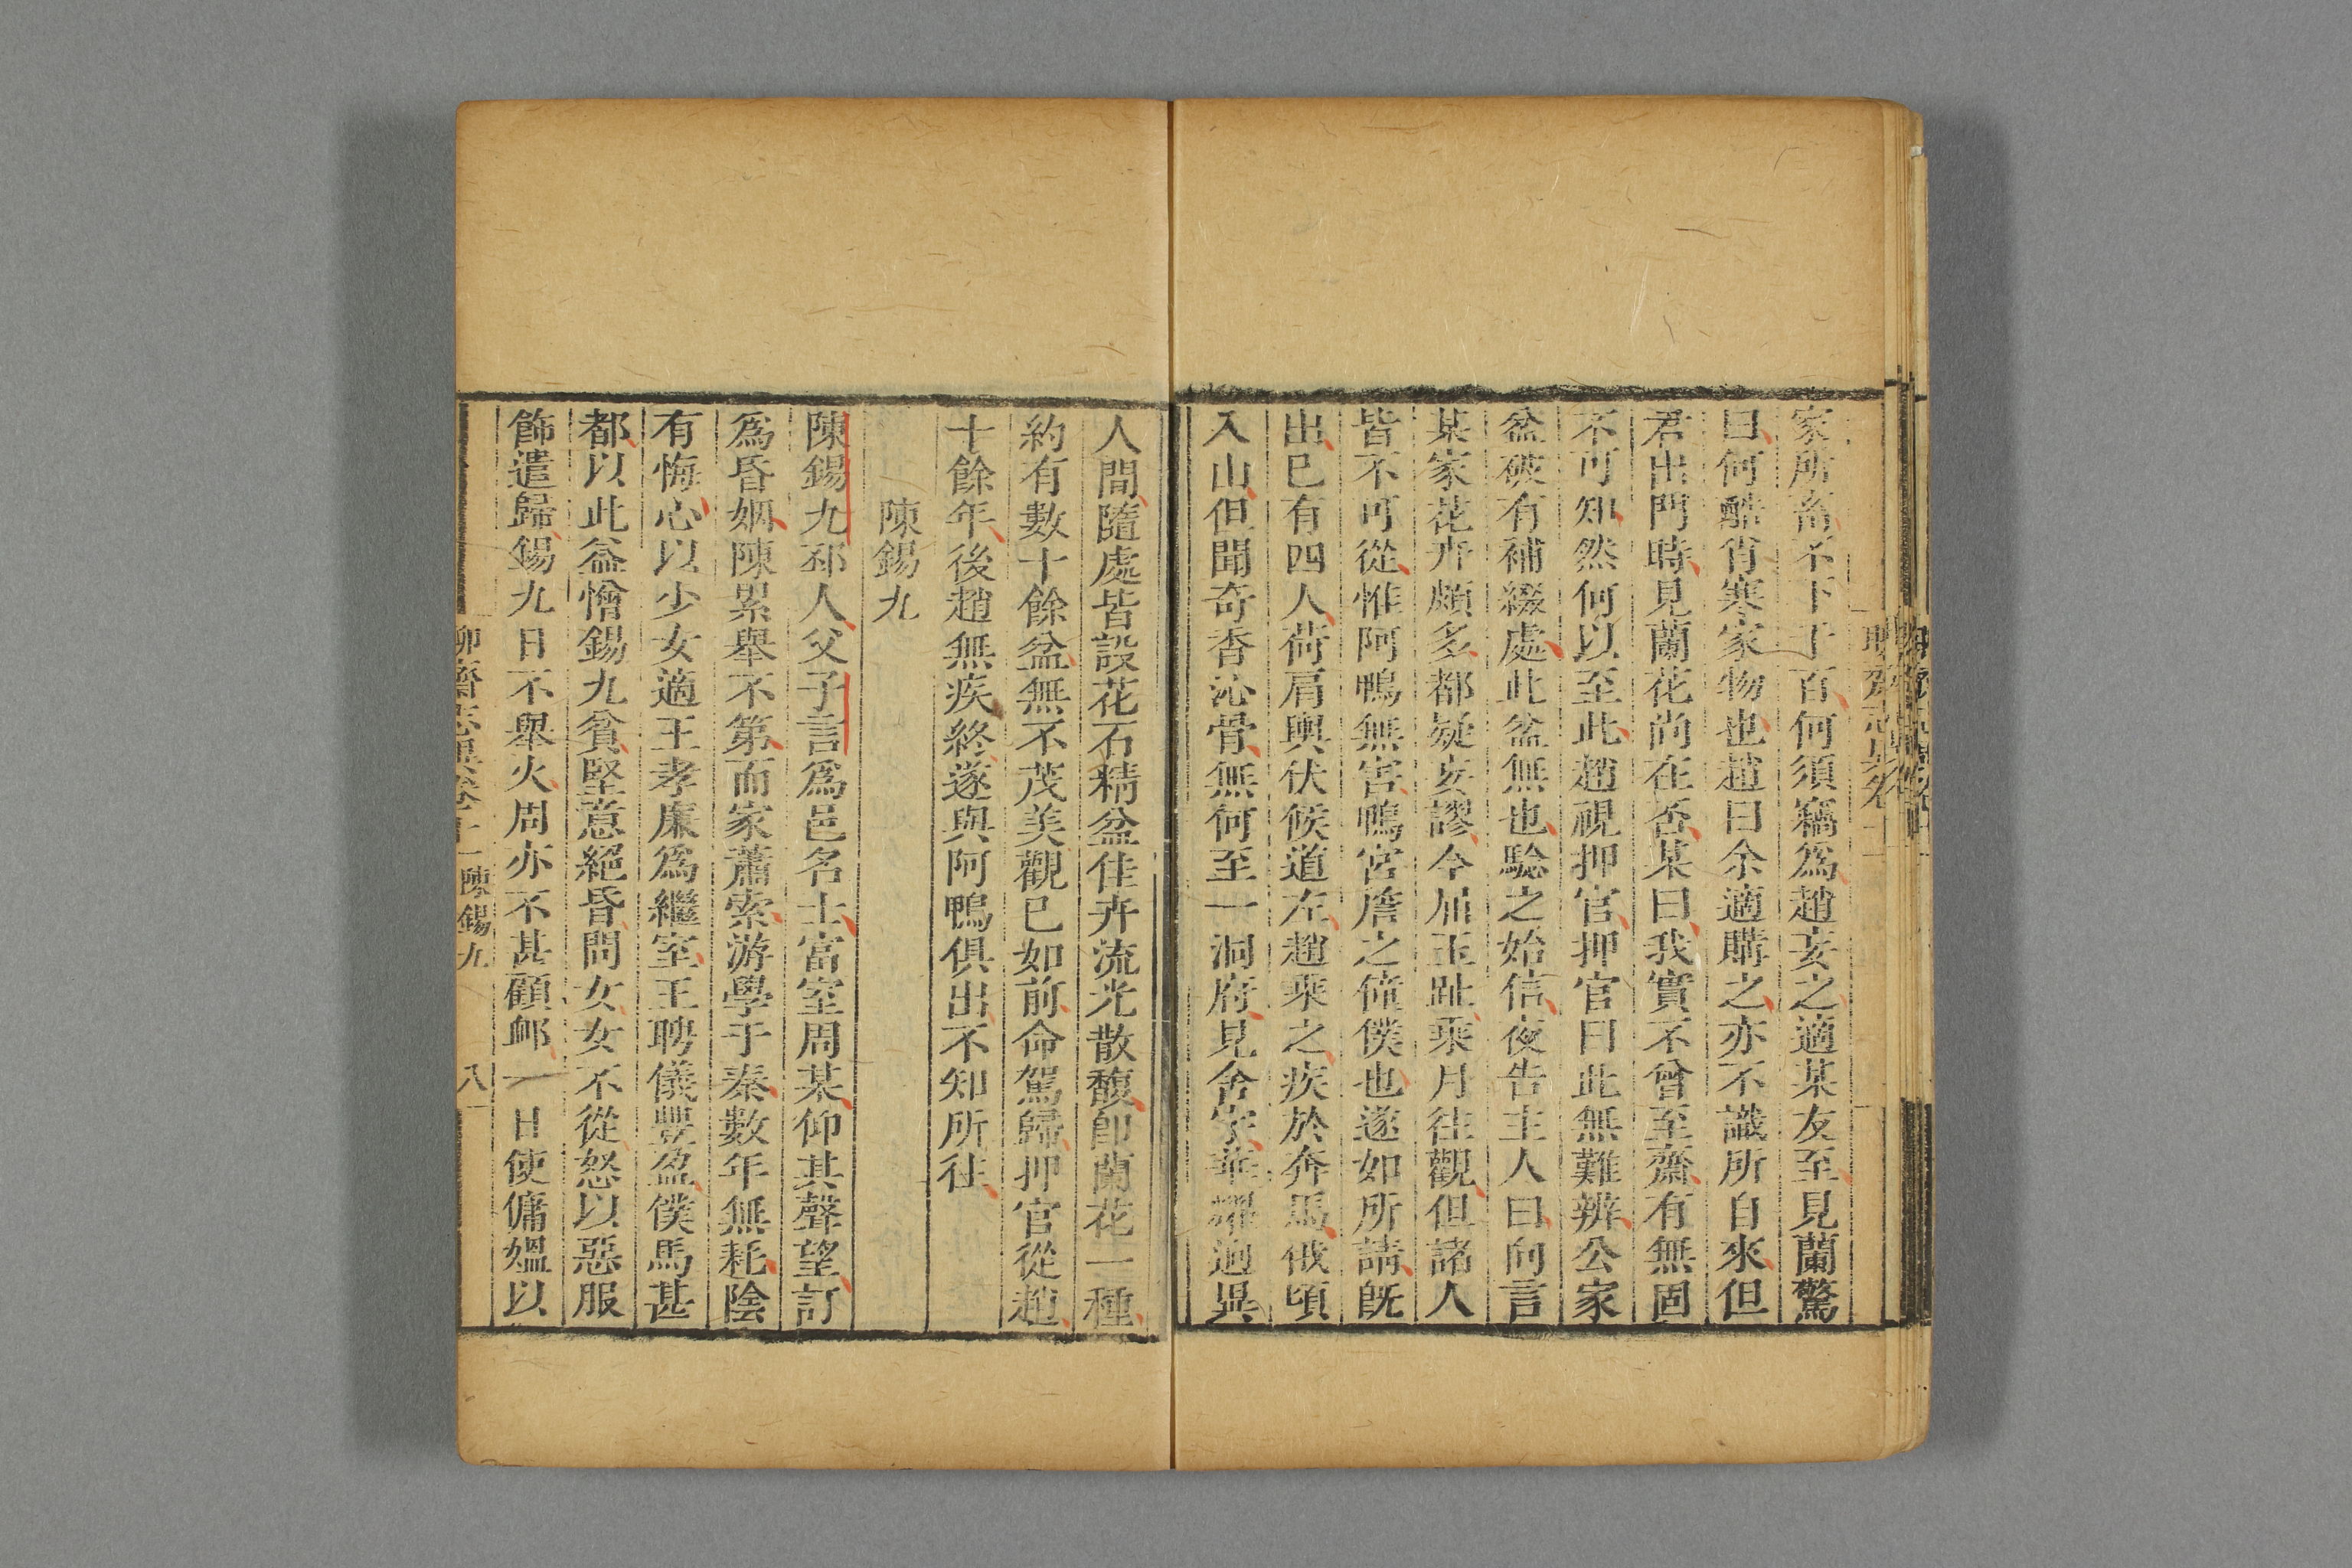 家所畜不下千百何須竊為趙妄之適某友至見蘭驚
曰何酷肖寒家物也趙曰余適購之亦不識所自來但
君出門時見蘭花尚在否某曰我實不曾至齋有無固
不可知然何以至此趙視押官押官曰此無難辨公家
盆破有補綴處此盆無也驗之始信夜告主人曰向言
某家花卉頗多都疑妄謬今屈玉趾乘月往觀但諸人
皆不可從惟阿鴨無害鴨宮詹之僮僕也遂如所請既
出已有四人荷肩輿伏候道左趙乘之疾於奔馬俄頃
入山但聞奇香沁骨無何至一洞府見舍宇華耀迥異
人間隨處皆設花石精盆佳卉流光散馥即蘭花一種
約有數十餘盆無不茂美觀已如前命駕歸押官從趙
十餘年後趙無疾終遂與阿鴨俱出不知所往
陳錫九
陳錫九邳人父子言為邑名士富室周某仰其聲望訂
為昏姻陳累舉不第而家蕭索游學于秦數年無耗陰
有悔心以少女適王孝廉為繼室王聘儀豐盈僕馬甚
都以此益憎錫九貧堅意絕昏問女女不從怒以惡服
飾遣歸錫九日不舉火周亦不甚顧卹一日使傭媼以
聊齋志異卷十一 陳錫九 八